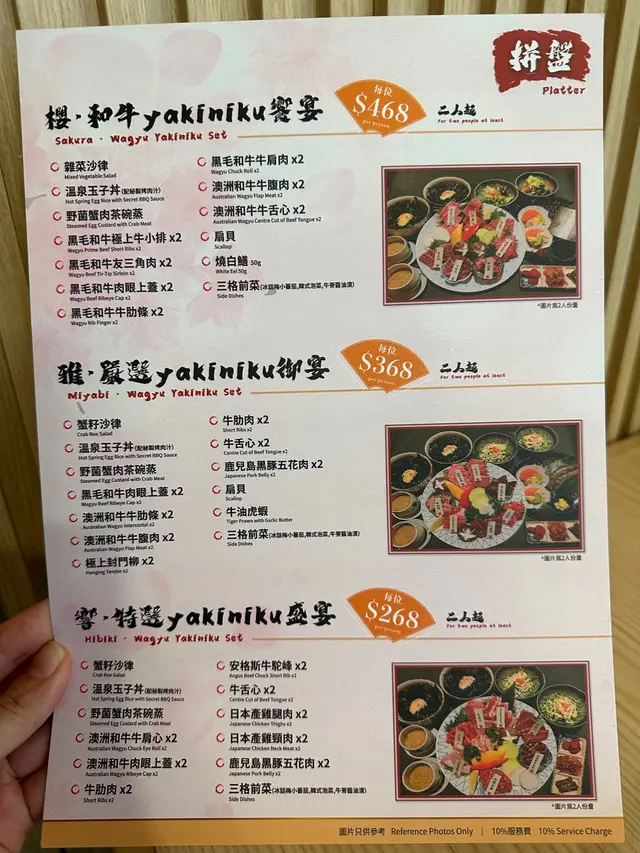 拼盤
Platter
櫻·和牛yakiniku饗宴
Sakura · Wagyu Yakiniku Set
每位
$468
per person
二人起
For two people at least
雜菜沙律
Mixed Vegetable Salad
溫泉玉子丼(配秘製烤肉汁)
Hot Spring Egg Rice with Secret BBQ Sauce
野菌蟹肉茶碗蒸
Steamed Egg Custard with Crab Meat
黑毛和牛極上牛小排 x2
Wagyu Prime Beef Short Ribs x2
黑毛和牛友三角肉 x2
Wagyu Beef Tri-Tip Sirloin x2
黑毛和牛肉眼上蓋 x2
Wagyu Beef Ribeye Cap x2
黑毛和牛牛肋條 x2
Wagyu Rib Finger x2
黑毛和牛牛肩肉 x2
Wagyu Chuck Roll x2
澳洲和牛牛腹肉 x2
Australian Wagyu Flap Meat x2
澳洲和牛牛舌心 x2
Australian Wagyu Centre Cut of Beef Tongue x2
扇貝
Scallop
燒白鱔 50g
White Eel 50g
三格前菜(冰話梅小蕃茄,韓式泡菜,牛蒡醬油漬)
Side Dishes
^圖片為2人份量
雅·嚴選yakiniku御宴
Miyabi · Wagyu Yakiniku Set
每位
$368
per person
二人起
For two people at least
蟹籽沙律
Crab Roe Salad
溫泉玉子丼(配秘製烤肉汁)
Hot Spring Egg Rice with Secret BBQ Sauce
野菌蟹肉茶碗蒸
Steamed Egg Custard with Crab Meat
黑毛和牛肉眼上蓋 x2
Wagyu Beef Ribeye Cap x2
澳洲和牛牛肋條 x2
Australian Wagyu Intercostal x2
澳洲和牛牛腹肉 x2
Australian Wagyu Flap Meat x2
極上封門柳 x2
Hanging Tender x2
牛肋肉 x2
Short Ribs x2
牛舌心 x2
Centre Cut of Beef Tongue x2
鹿兒島黑豚五花肉 x2
Japanese Pork Belly x2
扇貝
Scallop
牛油虎蝦
Tiger Prawn with Garlic Butter
三格前菜(冰話梅小蕃茄,韓式泡菜,牛蒡醬油漬)
Side Dishes
^圖片為2人份量
響·特選yakiniku盛宴
Hibiki · Wagyu Yakiniku Set
每位
$268
per person
二人起
For two people at least
蟹籽沙律
Crab Roe Salad
溫泉玉子丼(配秘製烤肉汁)
Hot Spring Egg Rice with Secret BBQ Sauce
野菌蟹肉茶碗蒸
Steamed Egg Custard with Crab Meat
澳洲和牛牛肩心 x2
Australian Wagyu Chuck Eye Roll x2
澳洲和牛肉眼上蓋 x2
Australian Wagyu Ribeye Cap x2
牛肋肉 x2
Short Ribs x2
安格斯牛駝峰 x2
Angus Beef Chuck Short Rib x2
牛舌心 x2
Centre Cut of Beef Tongue x2
日本產雞腿肉 x2
Japanese Chicken Thighs x2
日本產雞頸肉 x2
Japanese Chicken Neck Meat x2
鹿兒島黑豚五花肉 x2
Japanese Pork Belly x2
三格前菜(冰話梅小蕃茄,韓式泡菜,牛蒡醬油漬)
Side Dishes
^圖片為2人份量
圖片只供參考 Reference Photos Only | 10%服務費 10% Service Charge